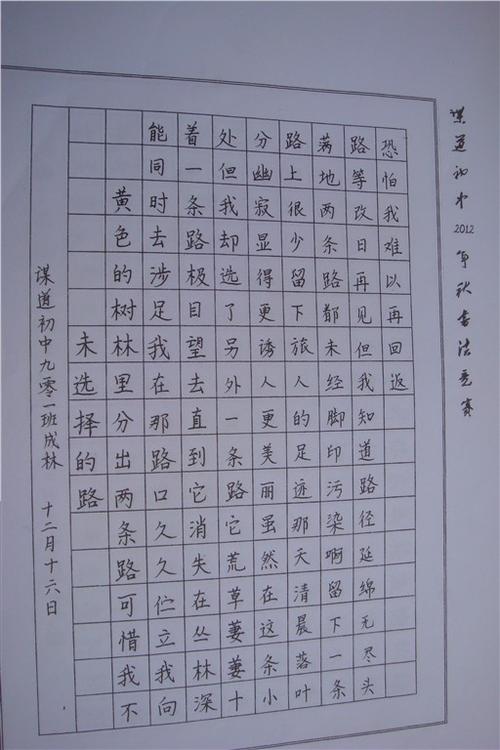 谋道初中2012年秋书法竞赛
未选择的路
黄色的树林里分出两条路可惜我不
能同时去涉足我在那路口久久伫立我向
着一条路极目望去直到它消失在丛林深
处但我却选了另外一条路它荒草萋萋十
分幽寂显得更诱人更美丽虽然在这条小
路上很少留下旅人的足迹那天清晨落叶
满地两条路都未经脚印污染啊留下一条
路等改日再见但我知道路径延绵无尽头
恐怕我难以再回返
谋道初中九零一班成林 十二月十六日